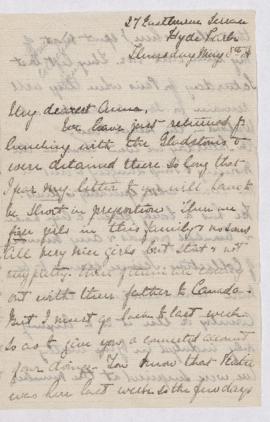 Hyde Park
Thursday May
My dearest Anna,
We have just returned fr
lunching with the Gladstones &
were detained there so long that
I fear my letter to you will have to
be short in proportion. There are
five girls in this family & no sons
all very nice girls but that's not
out with their father to Canada.
But I must go back to last week
so as to give you a connected account
of our doings. You know that
was here last week so the few days